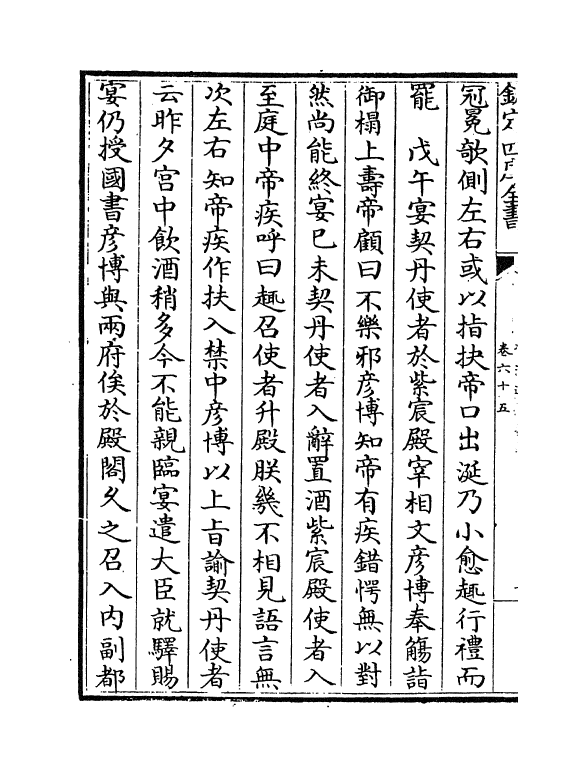 欽定四庫全書
卷六十五
冠冕欹側左右或以指抉帝口出涎乃小愈趣行禮而
罷　戊午宴契丹使者於紫宸殿宰相文彦博奉觴詣
御榻上壽帝顧曰不樂邪彦博知帝有疾錯愕無以對
然尚能終宴已未契丹使者入辭置酒紫宸殿使者入
至庭中帝疾呼曰趣召使者升殿朕幾不相見語言無
次左右知帝疾作扶入禁中彦博以上㫖諭契丹使者
云昨夕宫中飲酒稍多今不能親臨宴遣大臣就驛賜
宴仍授國書彦博與兩府俟於殿閣乆之召入内副都